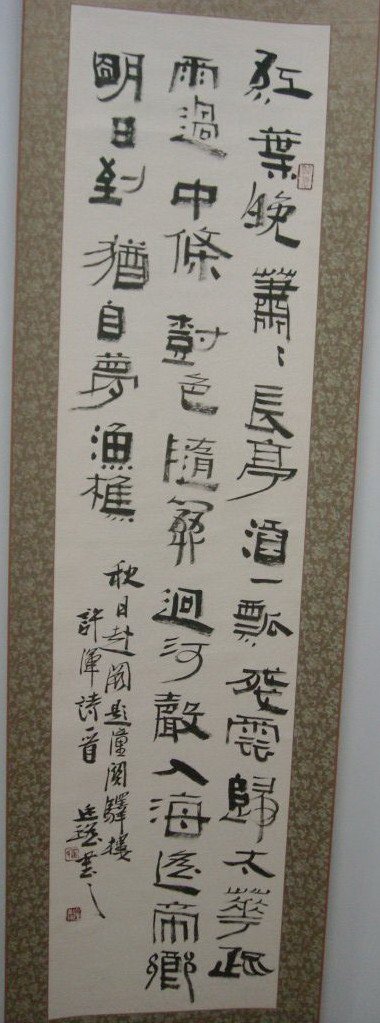 紅葉晚蕭〻長亭酒一瓢殘雲歸太華疏
雨過中條樹色隨關迥河聲入海遙帝鄉
明日到猶自夢漁樵
秋日赴闕題潼關驛樓
許渾詩一首